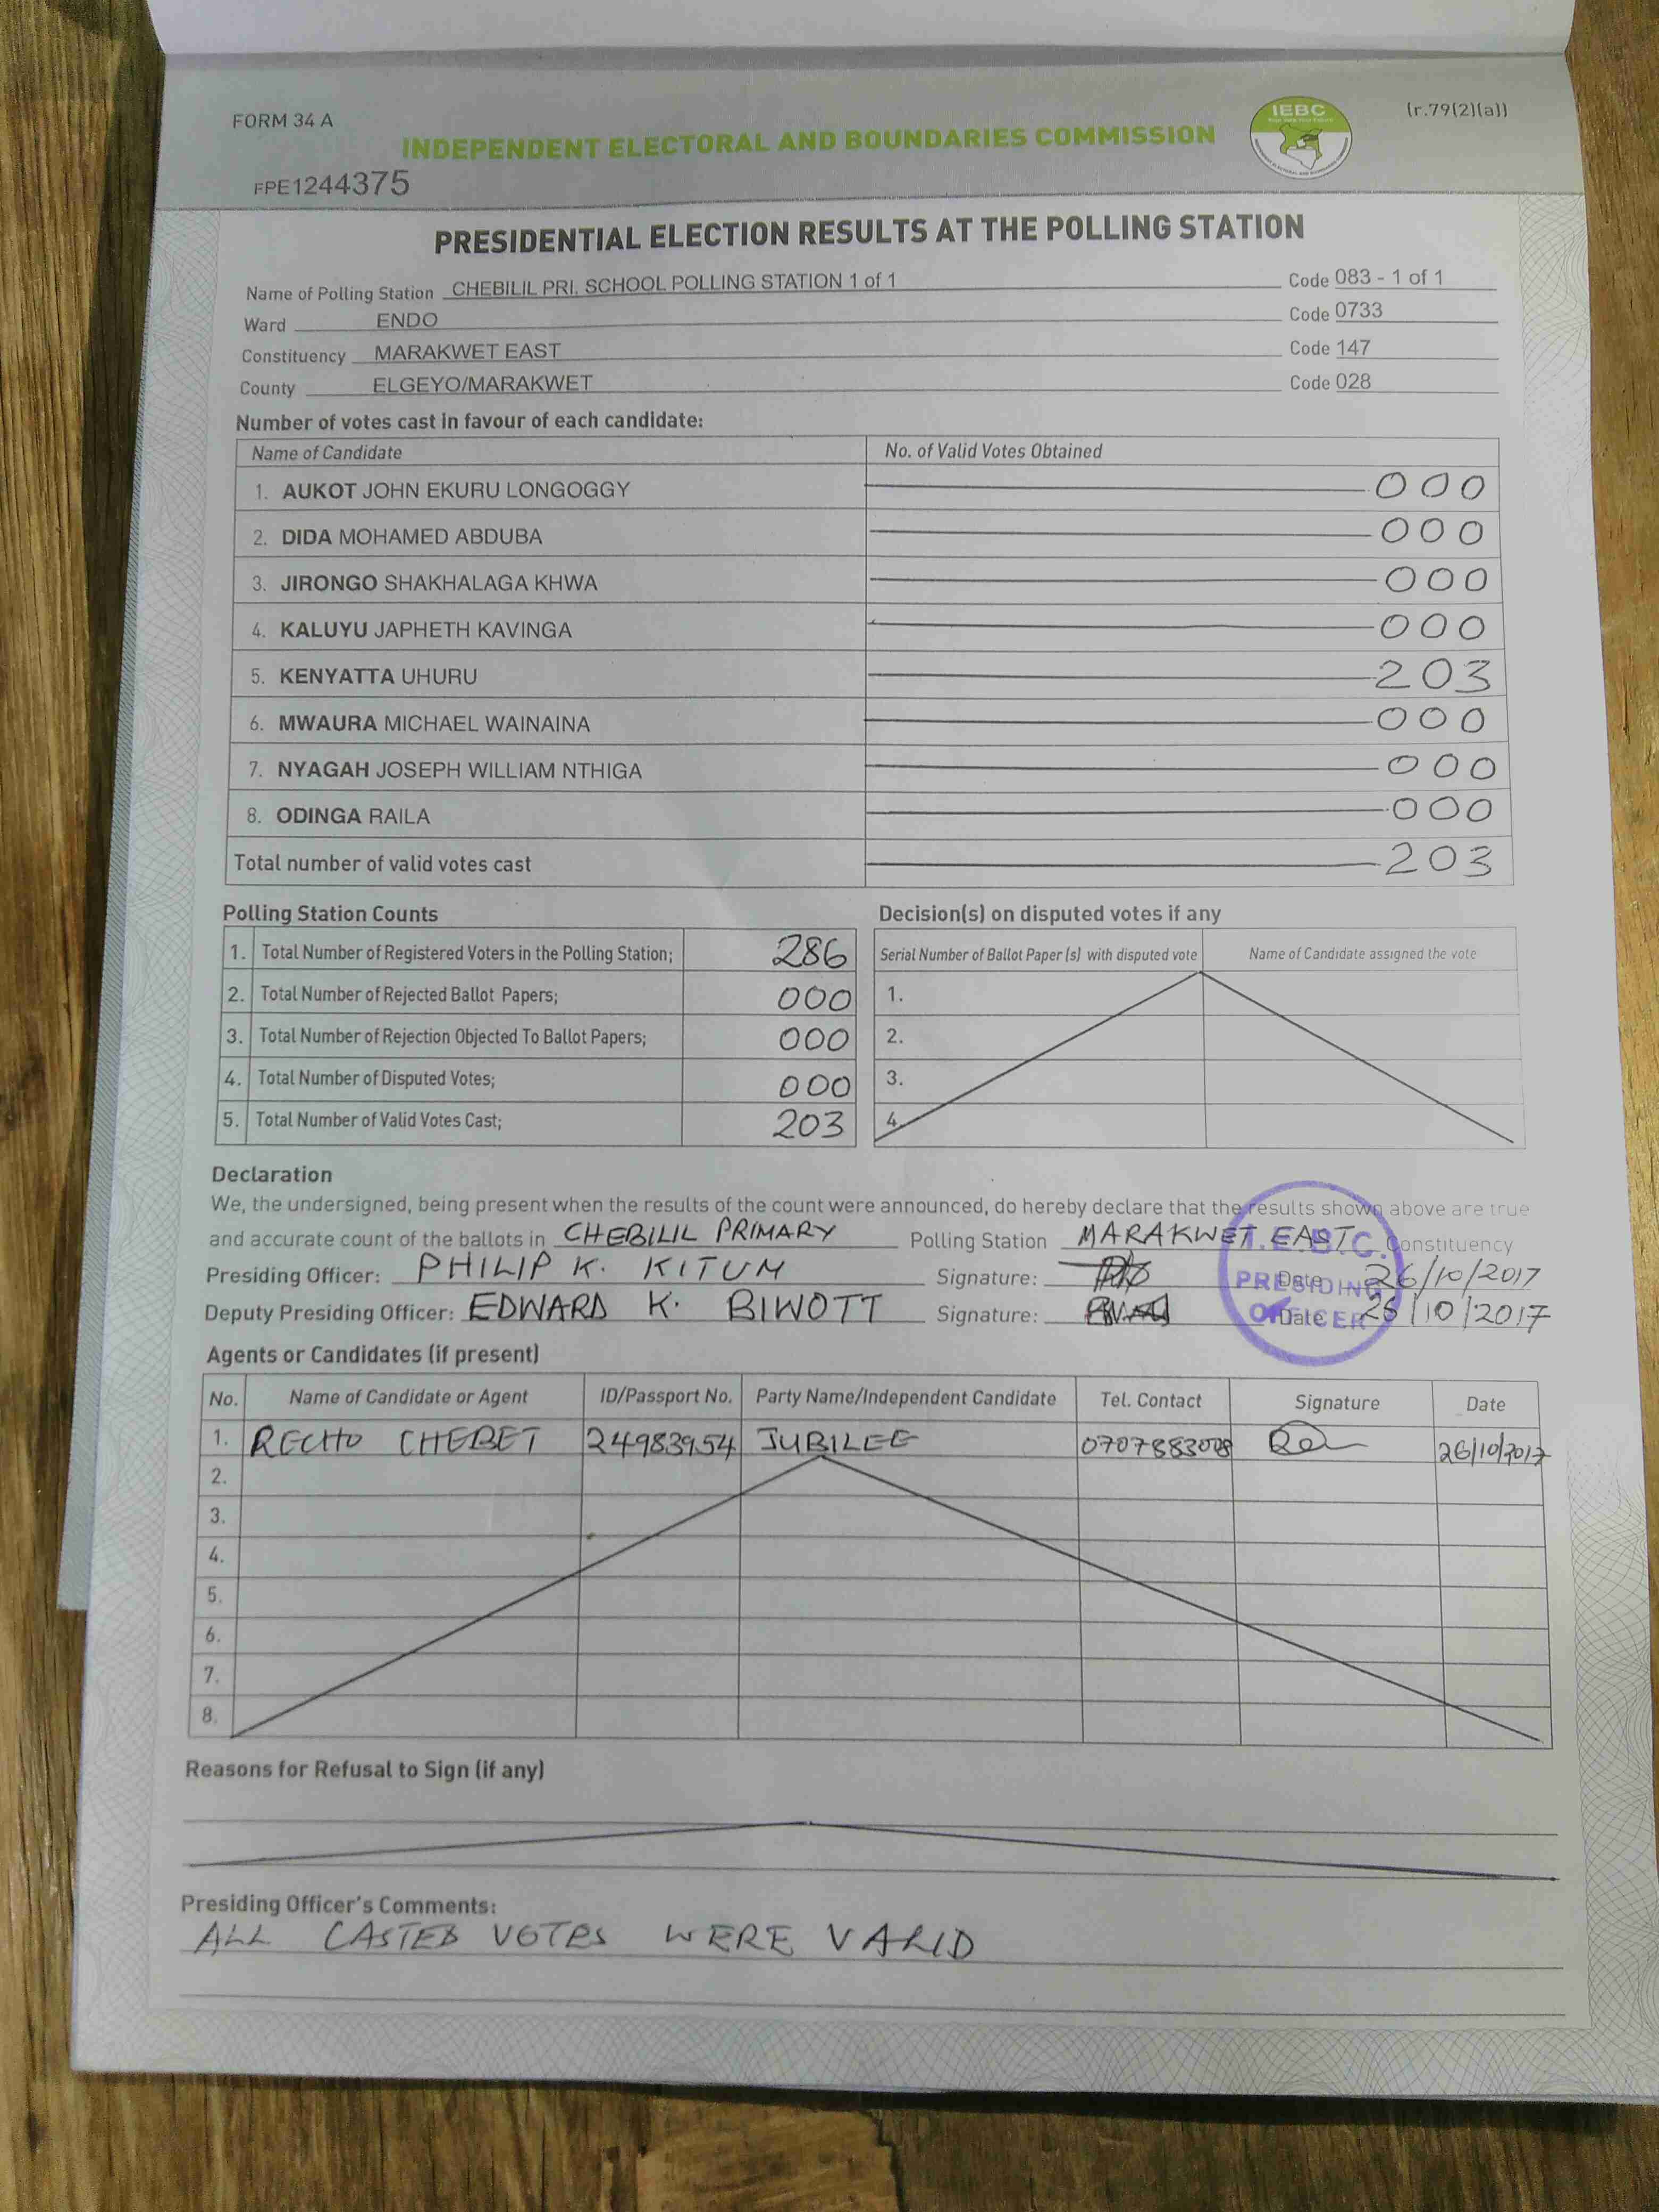 FORM 34 A
(r.79(2)(a))
IEBC
INDEPENDENT ELECTORAL AND BOUNDARIES COMMISSION
FPE1244375
PRESIDENTIAL ELECTION RESULTS AT THE POLLING STATION
Name of Polling Station CHEBILIL PRI. SCHOOL POLLING STATION 1 of 1 Code 083 - 1 of 1
Ward ENDO Code 0733
Constituency MARAKWET EAST Code 147
County ELGEYO/MARAKWET Code 028
Number of votes cast in favour of each candidate:
Name of Candidate No. of Valid Votes Obtained
1. AUKOT JOHN EKURU LONGOGGY 000
2. DIDA MOHAMED ABDUBA 000
3. JIRONGO SHAKHALAGA KHWA 000
4. KALUYU JAPHETH KAVINGA 000
5. KENYATTA UHURU 203
6. MWAURA MICHAEL WAINAINA 000
7. NYAGAH JOSEPH WILLIAM NTHIGA 000
8. ODINGA RAILA 000
Total number of valid votes cast 203
Polling Station Counts
1. Total Number of Registered Voters in the Polling Station; 286
2. Total Number of Rejected Ballot Papers; 000
3. Total Number of Rejection Objected To Ballot Papers; 000
4. Total Number of Disputed Votes; 000
5. Total Number of Valid Votes Cast; 203
Decision(s) on disputed votes if any
Serial Number of Ballot Paper (s) with disputed vote Name of Candidate assigned the vote
1.
2.
3.
4.
Declaration
We, the undersigned, being present when the results of the count were announced, do hereby declare that the results shown above are true
and accurate count of the ballots in CHEBILIL PRIMARY Polling Station MARAKWET EAST Constituency
Presiding Officer: PHILIP K. KITUM Signature: Date 26/10/2017
Deputy Presiding Officer: EDWARD K. BIWOTT Signature: Date 26/10/2017
I.E.B.C.
PRESIDING
OFFICER
Agents or Candidates (if present)
No. Name of Candidate or Agent ID/Passport No. Party Name/Independent Candidate Tel. Contact Signature Date
1. RECHO CHEBET 24983954 JUBILEE 26/10/2017
2.
3.
4.
5.
6.
7.
8.
Reasons for Refusal to Sign (if any)
Presiding Officer's Comments:
ALL CASTED VOTES WERE VALID